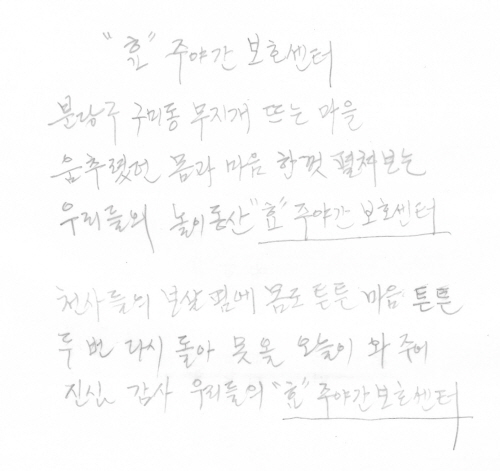 "효" 주야간 보호센터
분당구 구미동 무지개 뜨는 마을
움추렸던 몸과 마음 한껏 펼쳐보는
우리들의 놀이동산 "효" 주야간 보호센터
천사들의 보살핌에 몸도 튼튼 마음 튼튼
두 번 다시 돌아 못올 오늘이 와 주어
진심 감사 우리들의 "효" 주야간 보호센터